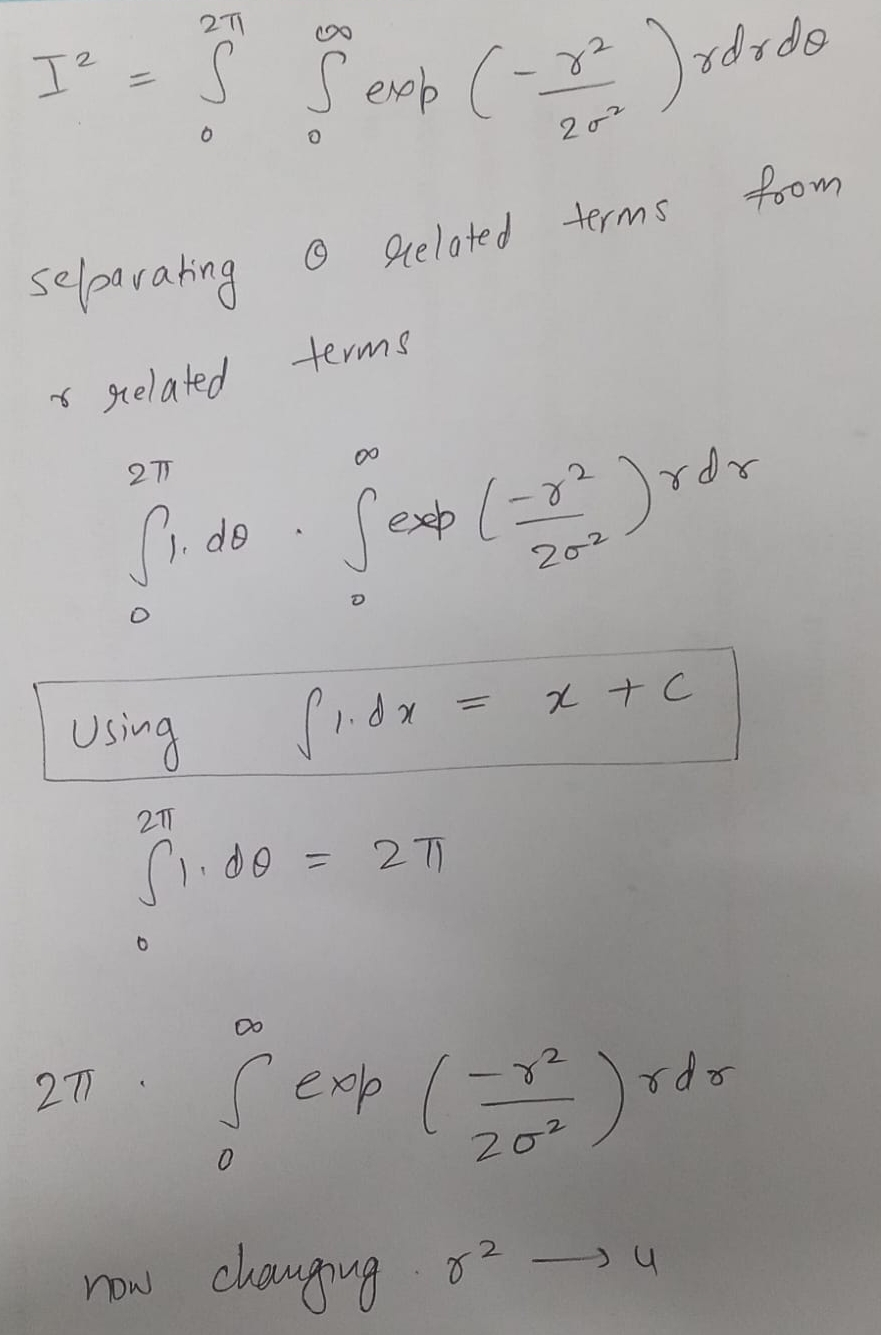 I² = ∫₀^2π ∫₀^∞ exp (-r²/2σ²) r dr dθ
separating θ related terms from
r related terms
∫₀^2π 1. dθ . ∫₀^∞ exp (-r²/2σ²) r dr
Using ∫ 1. dx = x + c
∫₀^2π 1. dθ = 2π
2π . ∫₀^∞ exp (-r²/2σ²) r dr
now changing r² → u